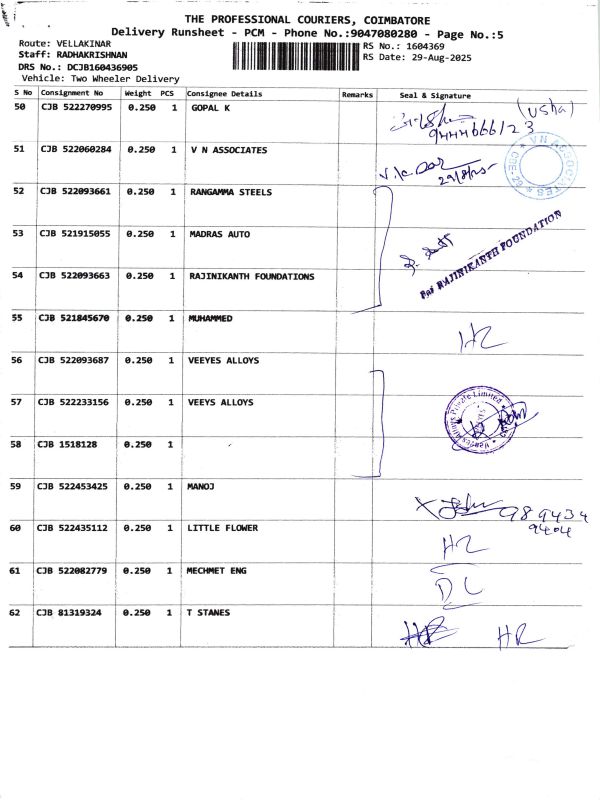 THE PROFESSIONAL COURIERS, COIMBATORE
Delivery Runsheet - PCM - Phone No.:9047080280 - Page No.:5
Route: VELLAKINAR
RS No.: 1604369
Staff: RADHAKRISHNAN
RS Date: 29-Aug-2025
DRS No.: DCJB160436905
Vehicle: Two Wheeler Delivery
S No Consignment No Weight PCS Consignee Details Remarks Seal & Signature
50 CJB 522270995 0.250 1 GOPAL K (Usha)
9444666123
51 CJB 522060284 0.250 1 V N ASSOCIATES
29/8/25
V N ASSOCIATES
52 CJB 522093661 0.250 1 RANGAMMA STEELS
53 CJB 521915055 0.250 1 MADRAS AUTO
For RAJINIKANTH FOUNDATION
54 CJB 522093663 0.250 1 RAJINIKANTH FOUNDATIONS
55 CJB 521845670 0.250 1 MUHAMMED
56 CJB 522093687 0.250 1 VEEYES ALLOYS
57 CJB 522233156 0.250 1 VEEYS ALLOYS
Alloys Private Limited
58 CJB 1518128 0.250 1
59 CJB 522453425 0.250 1 MANOJ
989434
9404
60 CJB 522435112 0.250 1 LITTLE FLOWER
61 CJB 522082779 0.250 1 MECHMET ENG
DL
62 CJB 81319324 0.250 1 T STANES HR